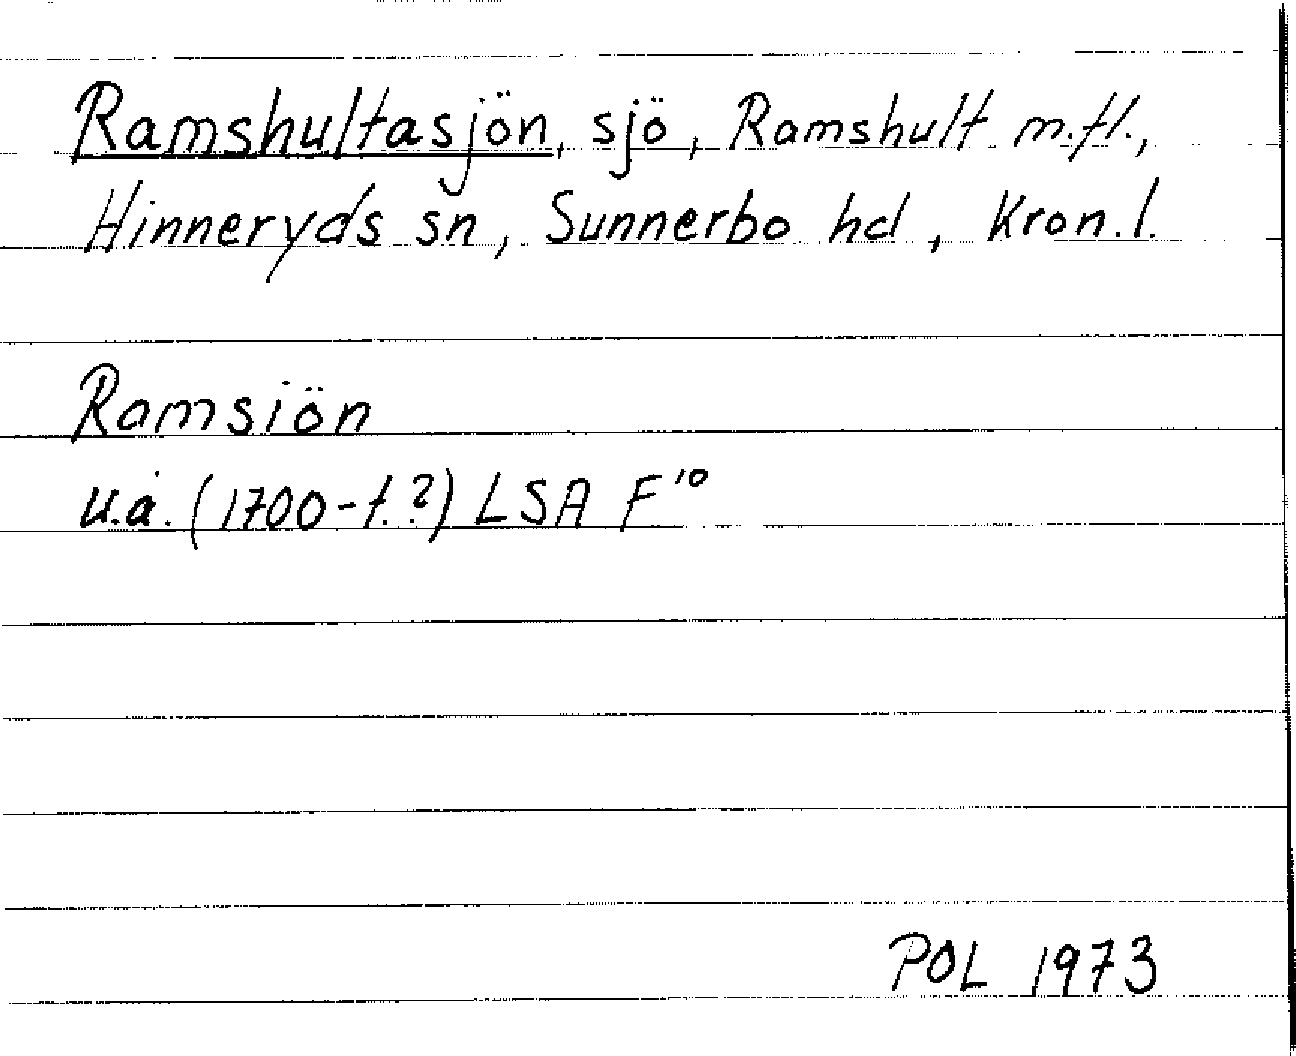 Ramshultasjön, sjö, Ramshult m.fl.,
Hinneryds sn, Sunnerbo hd, Kron.l.
Ramsiön
u.å. (1700-t.?) LSA F¹⁰
POL 1973